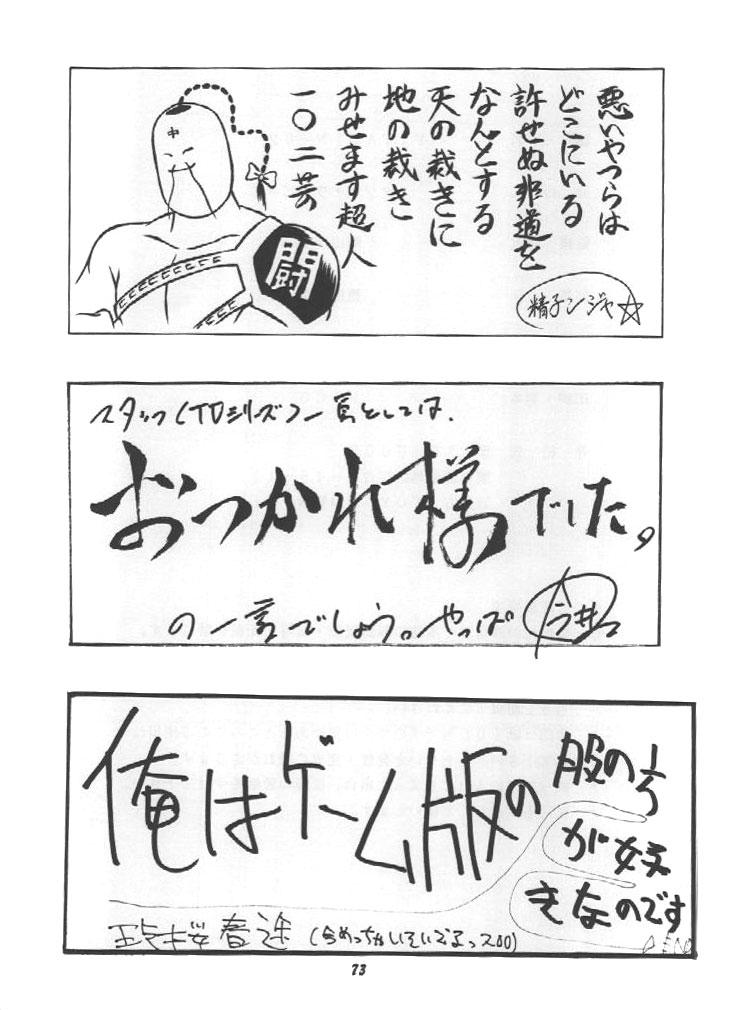 悪いやつらは
どこにいる
許せぬ非道を
なんとする
天の裁きに
地の裁き
みせます超人
一〇二芸
中
闘
精子ンジャ☆
スタッフ(TDシリーズ)一員としては、
おつかれ様でした。
の一言でしょう。やっぱ
今井
俺はゲーム版の
股の1/2
が好
きなのです
桜春途
73